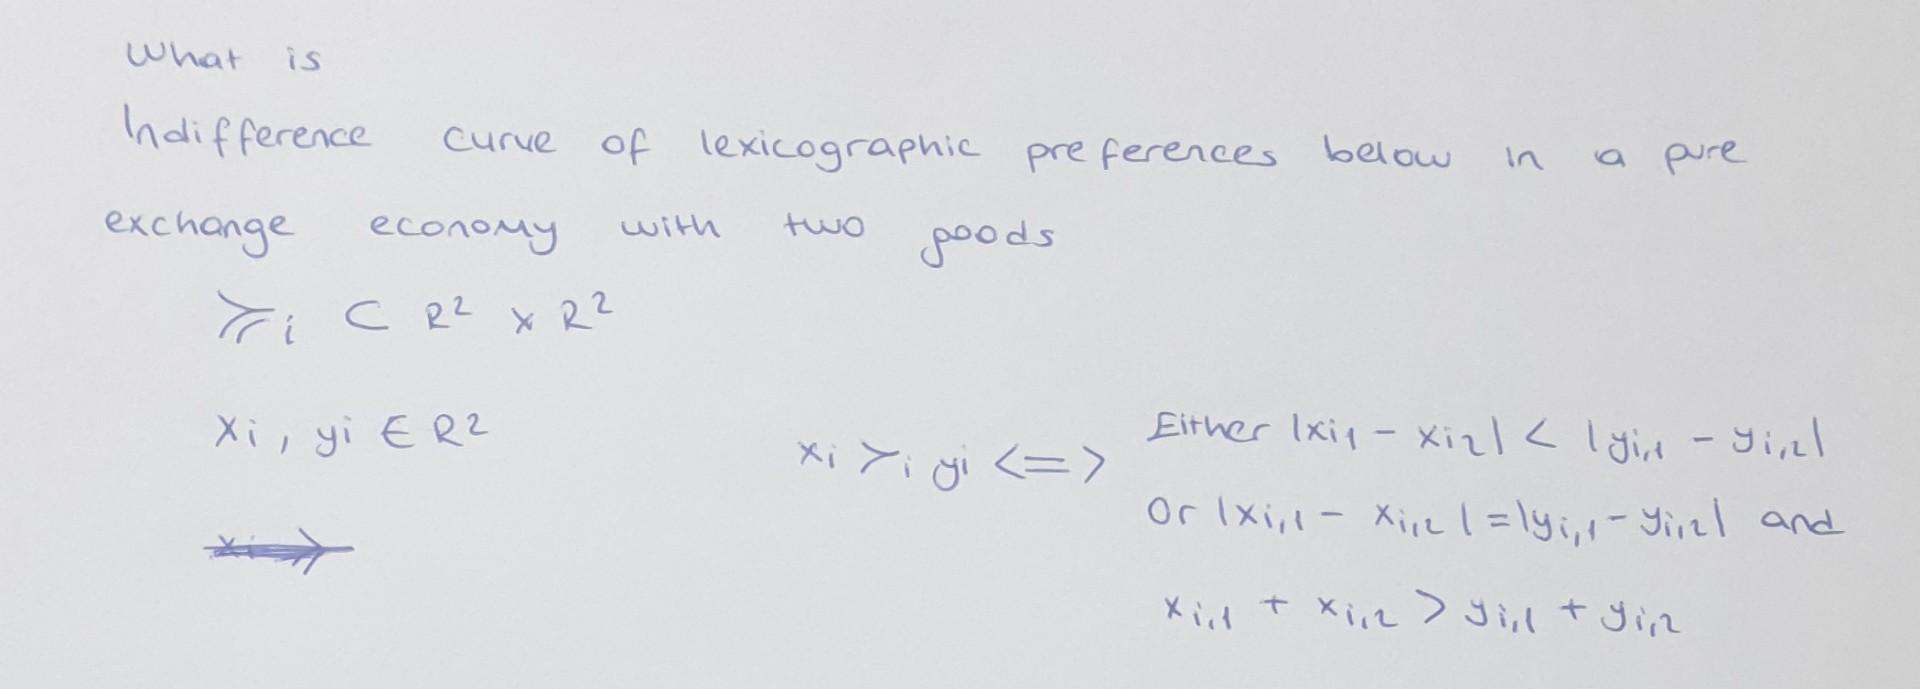 What is
Indifference curve of lexicographic preferences below in a pure
exchange economy with two goods
≿i ⊂ R² x R²
Xi, yi ∈ R²
xi ≻i yi <=> Either |xi1 - xi2| < |yi,1 - yi,2|
Or |xi,1 - xi,2| = |yi,1 - yi,2| and
xi,1 + xi,2 > yi,1 + yi,2